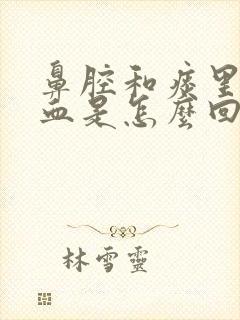 鼻腔和痰里
血是怎麼回
林雪靈